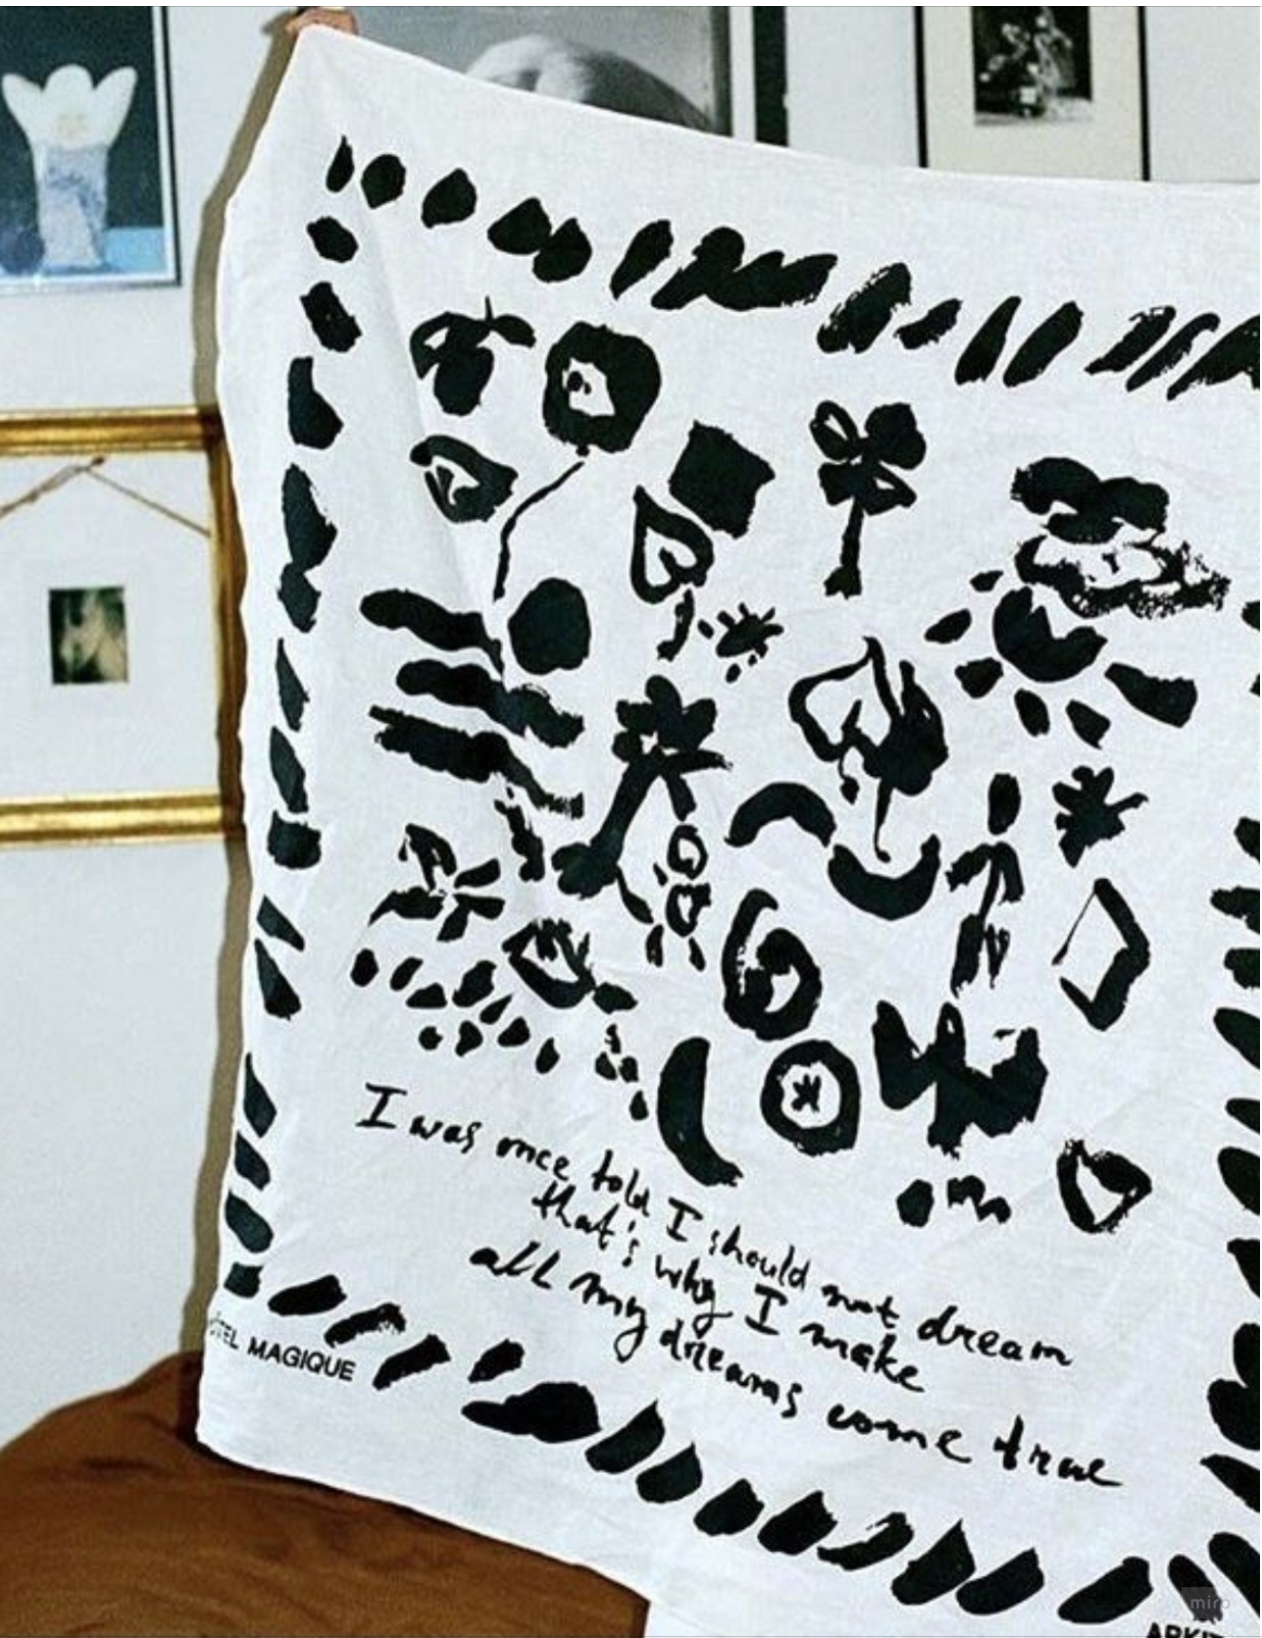 I was once told I should not dream
that's why I make
all my dreams come true
MAGIQUE
miro